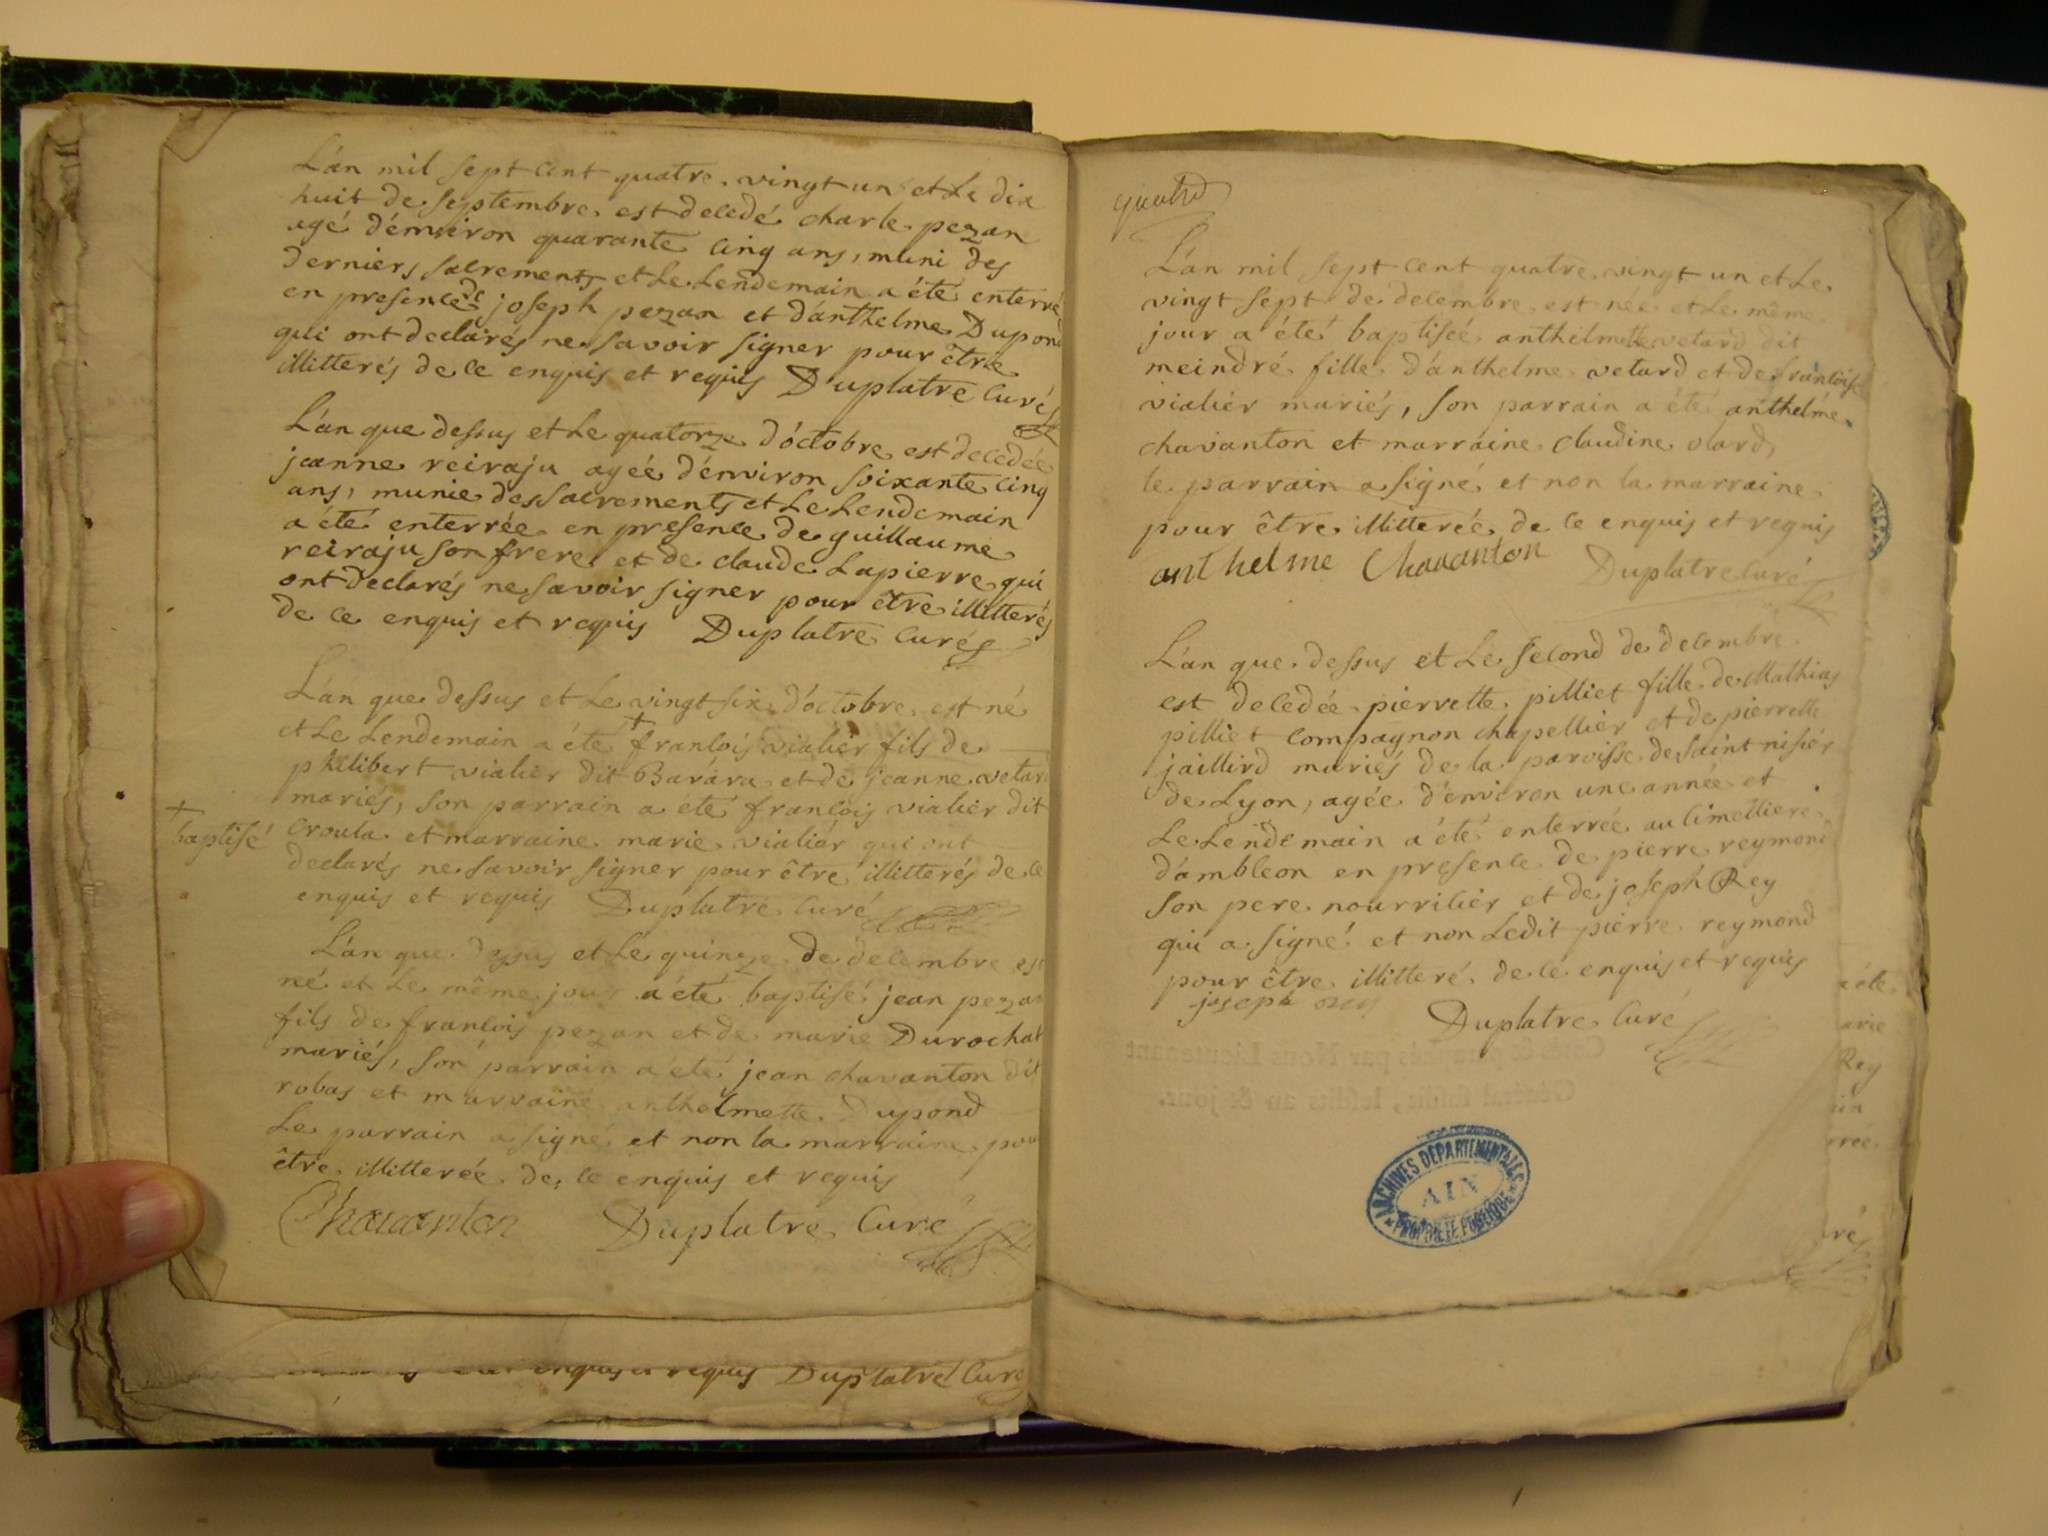 L'an mil sept cent quatre vingt un et Le dix
huit de septembre est decedé charle pezan
agé d'environ quarante cinq ans, muni des
derniers sacrements et Le Lendemain a été enterré
en presence de joseph pezan et d'anthelme Dupond
qui ont declarés ne savoir signer pour être
illitterés de ce enquis et requis Duplatre Curé
L'an que dessus et Le quatorze d'octobre est decedée
jeanne reiraju agée d'environ soixante cinq
ans, munie des sacrements et Le Lendemain
a été enterrée en presence de guillaume
reiraju son frere et de claude Lapierre qui
ont declarés ne savoir signer pour être illitterés
de ce enquis et requis Duplatre Curé
L'an que dessus et Le vingt six d'octobre est né
et Le Lendemain a été + francois vialier fils de
philibert vialier dit Barára et de jeanne vetard
mariés, son parrain a eté françois vialier dit
croula et marraine marie vialiér qui ont
declarés ne savoir signer pour être illitterés de ce
enquis et requis Duplatre Curé
+
baptisé
L'an que dessus et Le quinze de decembre est
né et Le même jour a été baptisé jean pezan
fils de francois pezan et de marie Durochat
mariés, son parrain a été jean chavanton dit
robas et marraine anthelmette Dupond
Le parrain a signé et non la marraine pour
être illitterée de ce enquis et requis
Chavanton Duplatre Curé
enquis et requis Duplatre Curé
quatre
L'an mil sept cent quatre vingt un et Le
vingt sept de decembre est neé et Le même
jour a été baptiseé anthelmette vetard dit
meindré fille d'anthelme vetard et de françoise
vialiér mariés, son parrain a été anthelme
chavanton et marraine claudine olard,
le parrain a signé et non la marraine
pour être illitereé de ce enquis et requis
anthelme Chavanton Duplatre Curé
L'an que dessus et Le second de decembre
est decedée pierrette pilliet fille de Mathias
pilliet compagnon chapellier et de pierrette
jaillird mariés de la paroisse de saint nisiér
de Lyon, agée d'environ une année et
Le Lendemain a été enterrée au cimettiere
d'ambleon en presence de pierre reymond
son pere nourricier et de joseph Rey
qui a signé et non Ledit pierre reymond
pour être illitteré de ce enquis et requis
joseph rey
Duplatre Curé
ARCHIVES DEPARTEMENTALES
AIN
PROPRIETE PUBLIQUE
a éte
arie
Rey
rree